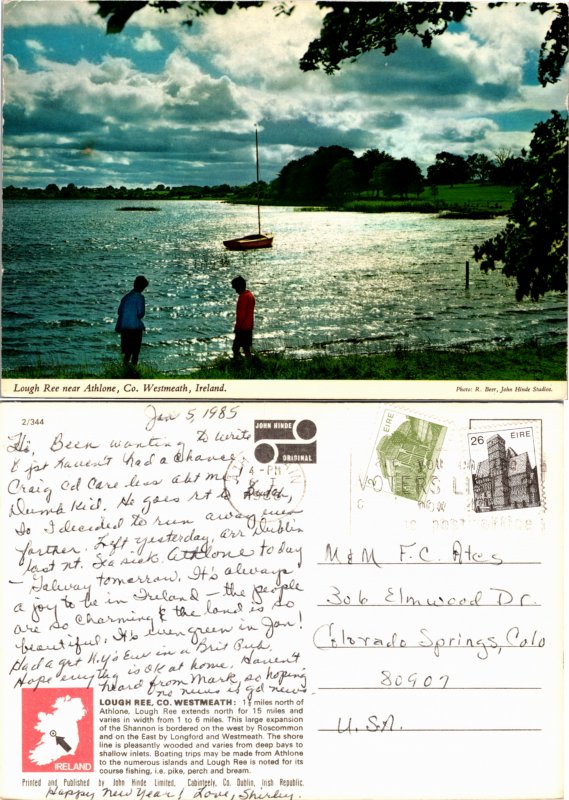 Lough Ree near Athlone, Co. Westmeath, Ireland.
Photo: R. Beer, John Hinde Studios.
2/344
Jan 5, 1985
JOHN HINDE
ORIGINAL
Hi, Been wanting to write
& jst haven't had a chance.
Craig cd care less abt me!
Dumb Kid. He goes rt to
So I decided to run away even
farther. Left yesterday, arr Dublin
last nt. Athlone today
- Galway tomorrow. It's always
a joy to be in Ireland - the people
are so charming & the land is so
beautiful. It's even green in Jan!
Had a grt N.Y's Eve in a Brit Pub.
Hope everythg is OK at home. Havent
heard from Mark, so hoping
no news is gd news.
4-PM
EIRE
26 EIRE
VOTERS
M&M F.C. Ates
306 Elmwood Dr.
Colorado Springs, Colo
80907
U.S.A.
LOUGH REE, CO. WESTMEATH: 1½ miles north of
Athlone, Lough Ree extends north for 15 miles and
varies in width from 1 to 6 miles. This large expansion
of the Shannon is bordered on the west by Roscommon
and on the East by Longford and Westmeath. The shore
line is pleasantly wooded and varies from deep bays to
shallow inlets. Boating trips may be made from Athlone
to the numerous islands and Lough Ree is noted for its
course fishing, i.e. pike, perch and bream.
IRELAND
Printed and Published by John Hinde Limited, Cabinteely, Co. Dublin, Irish Republic.
Happy New Year! Love, Shirley.